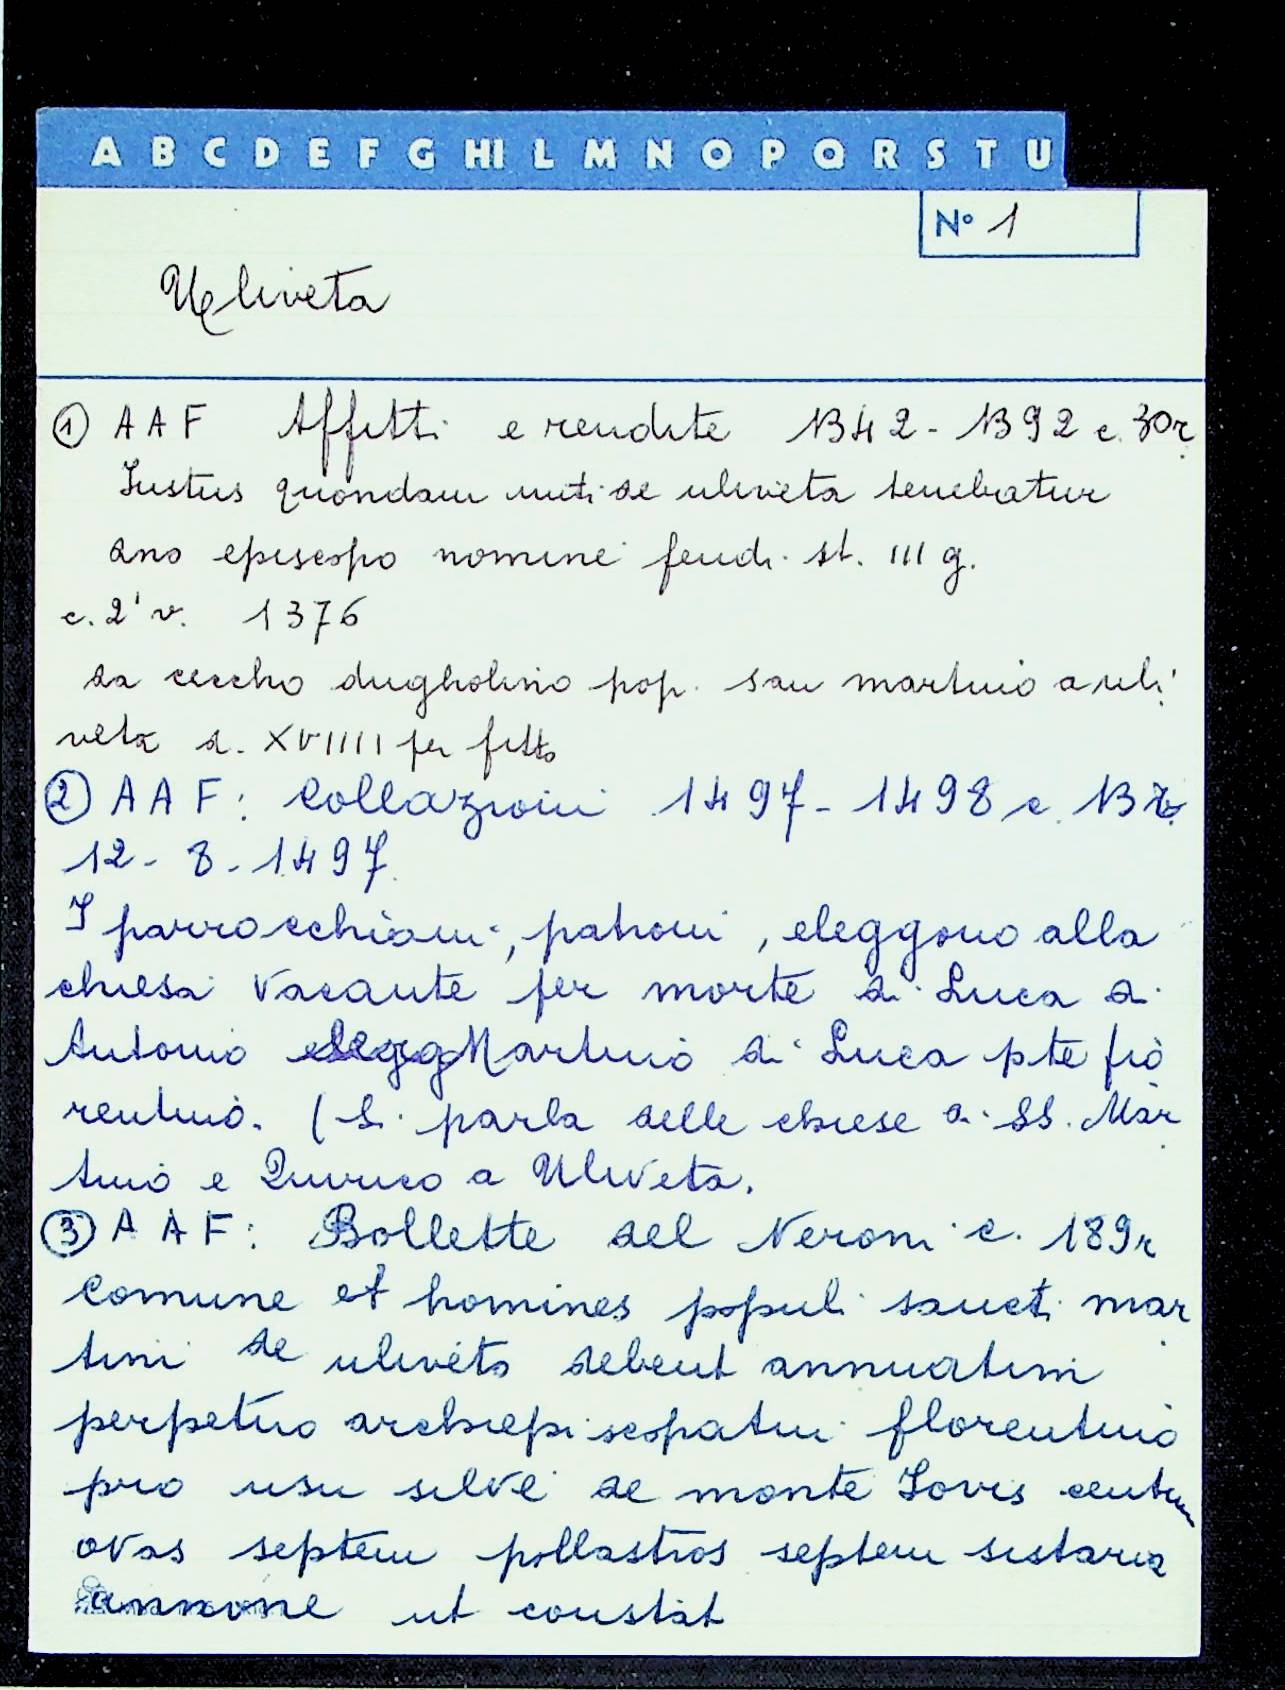 A B C D E F G HI L M N O P Q R S T U
N° 1
Uliveta
① AAF Affitti e rendite 1342-1392 c. 30r
Iustus quondam muti de uliveta tenebatur
dno episcopo nomine feudi st. III g.
c. 2 v. 1376
da ceccho dugholino pop. san martino a uli
veta d. XVIIII per fitto
② AAF: Collazioni 1497-1498 c. 13
12-8-1497.
I parrocchiani, patroni, eleggono alla
chiesa vacante per morte di Luca di
Antonio Martino di Luca pte fio
rentino. (Si parla delle chiese di SS. Mar
tino e Quirico a Uliveta.
③ AAF: Bollette del Neroni c. 189r
Comune et homines populi sancti mar
tini de uliveto debent annuatim
perpetuo archiepiscopatui florentino
pro usu silve de monte Iovis centum
ovas septem pollastros septem sistaria
annone ut constat